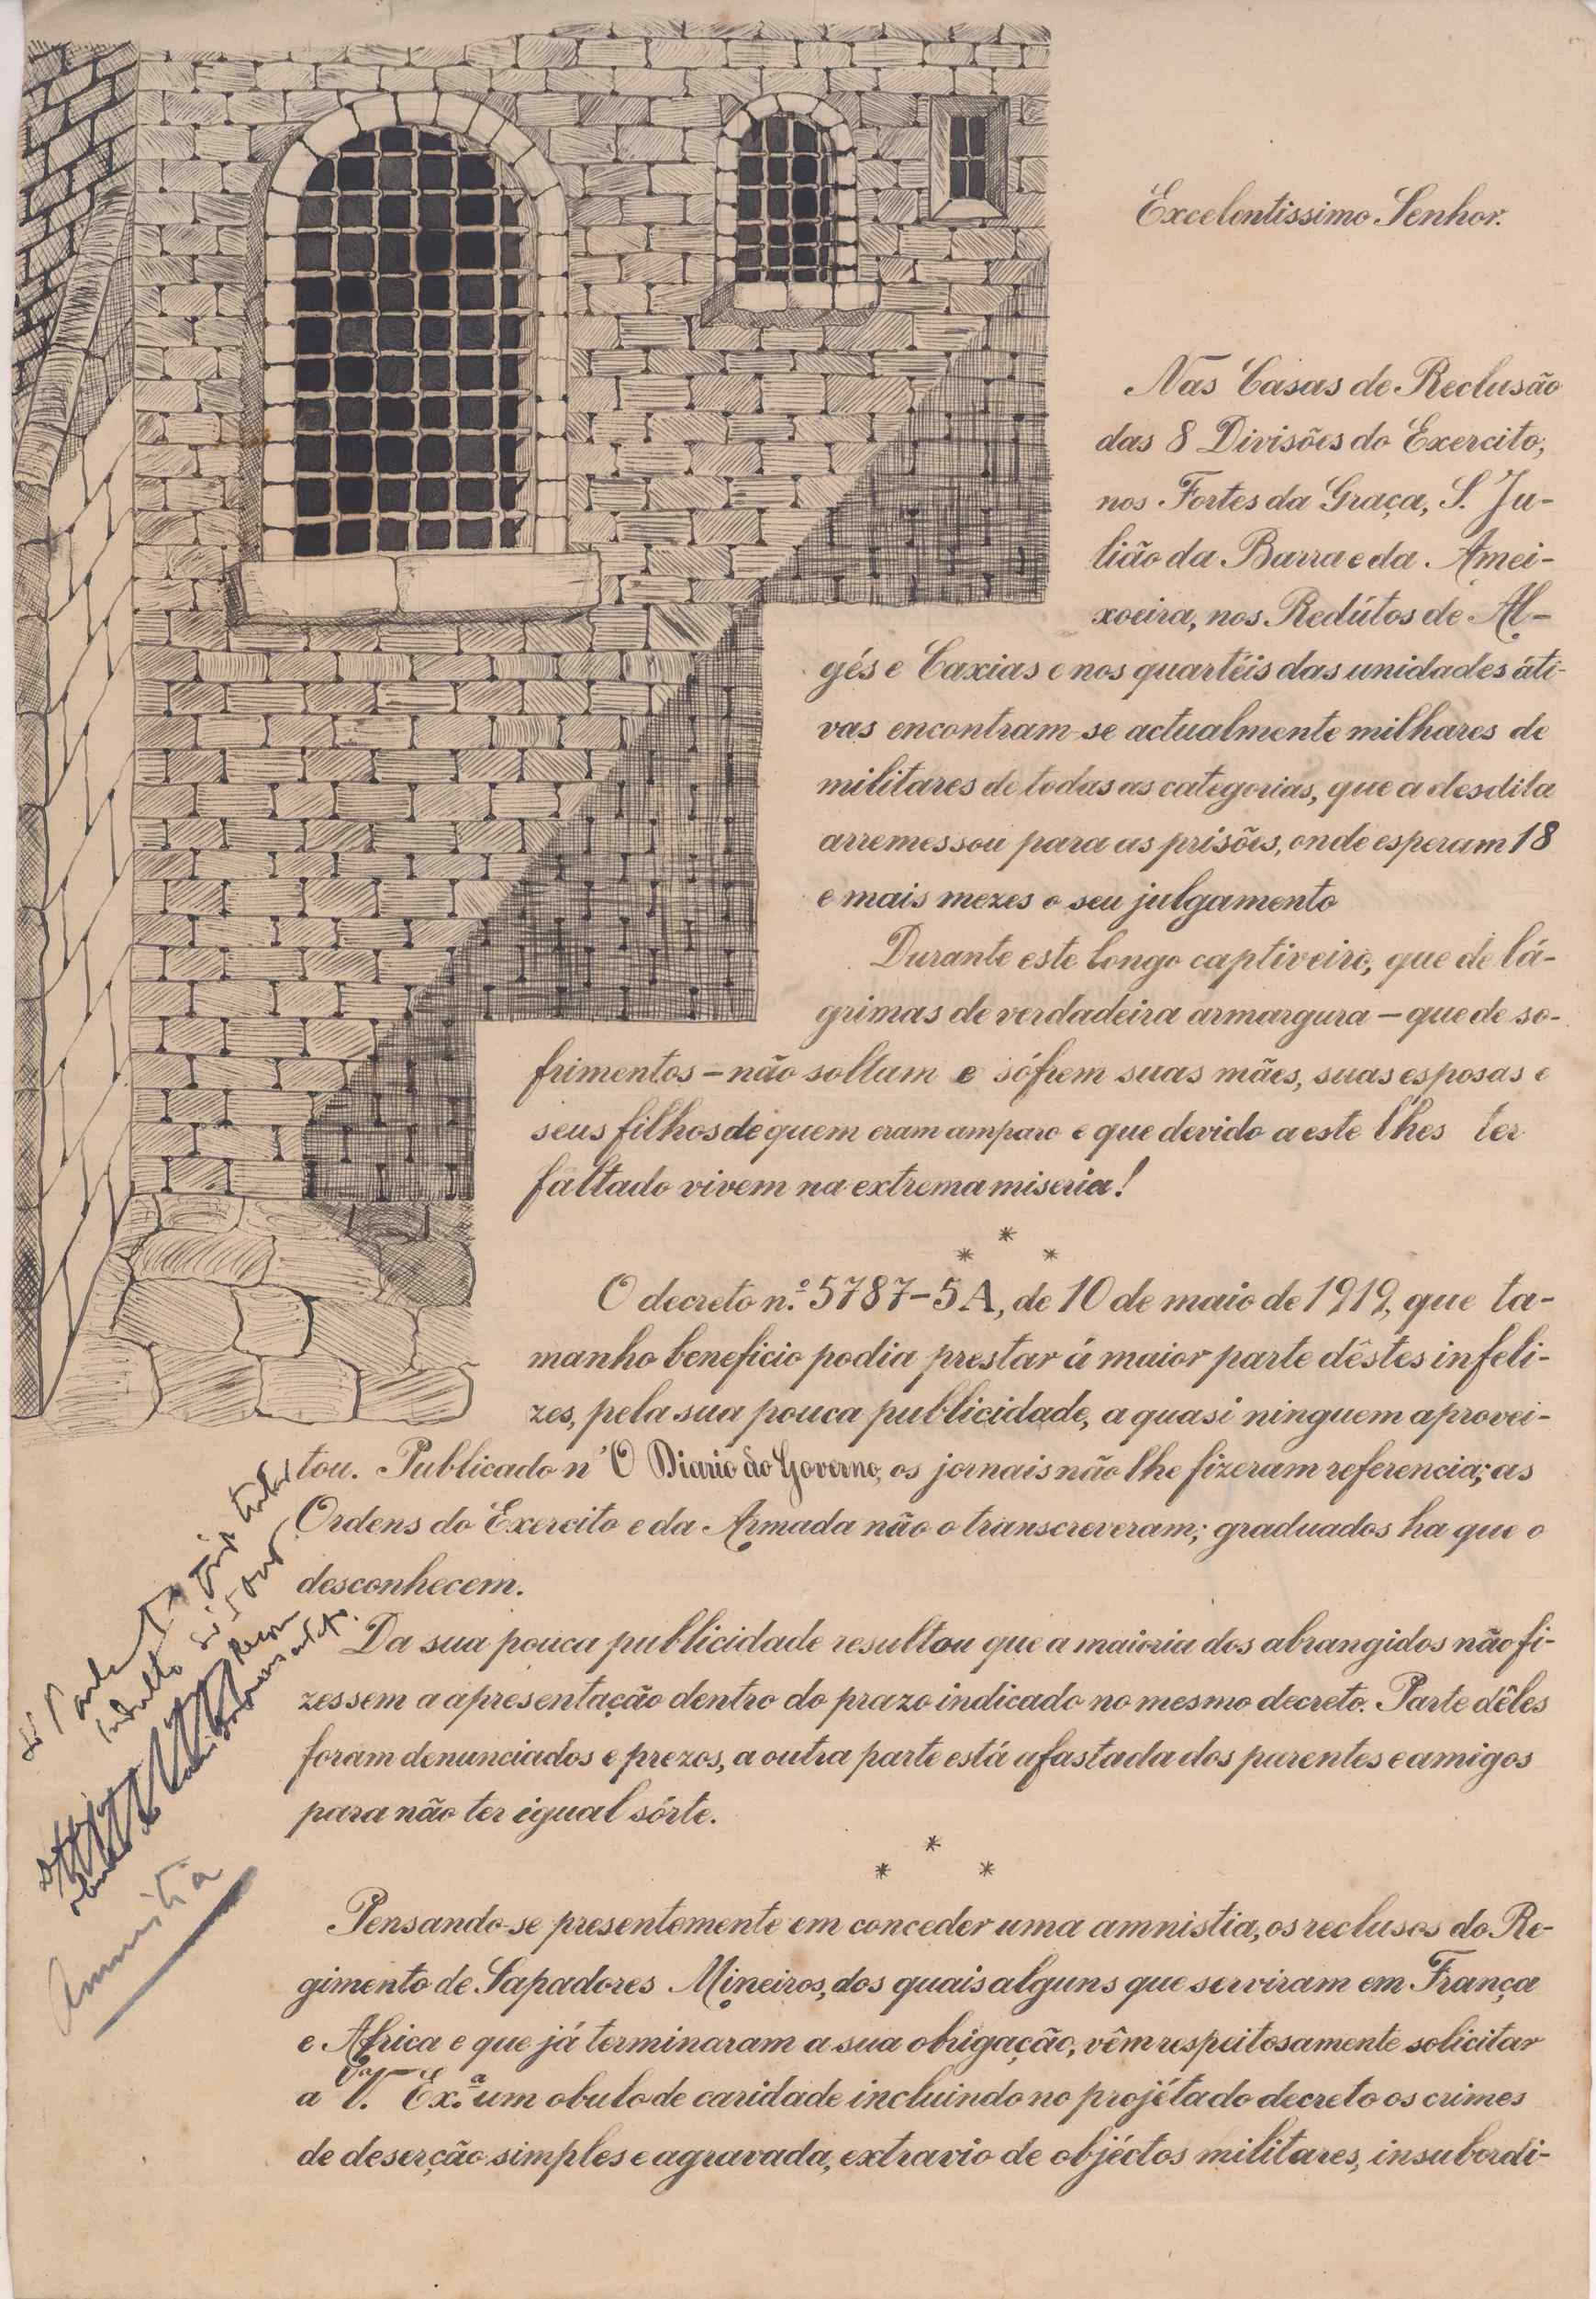 Excelentissimo Senhor.
Nas Casas de Reclusão
das 8 Divisões do Exercito,
nos Fortes da Graça, S. Ju-
lião da Barra e da Amei-
xoeira, nos Redútos de Al-
gés e Caxias e nos quartéis das unidades áti-
vas encontram-se actualmente milhares de
militares de todas as categorias, que a desdita
arremessou para as prisões, onde esperam 18
e mais mezes o seu julgamento
Durante este longo captiveiro, que de lá-
grimas de verdadeira armargura — que de so-
frimentos — não soltam e sófrem suas mães, suas esposas e
seus filhos de quem eram amparo e que devido a este lhes ter
faltado vivem na extrema miseria!
* * *
O decreto n.º 5787-5A, de 10 de maio de 1919, que ta-
manho beneficio podia prestar á maior parte dêstes infeli-
zes, pela sua pouca publicidade, a quasi ninguem aprovei-
tou. Publicado n'O Diario do Governo, os jornais não lhe fizeram referencia; as
Ordens do Exercito e da Armada não o transcreveram; graduados ha que o
desconhecem.
Da sua pouca publicidade resultou que a maioria dos abrangidos não fi-
zessem a apresentação dentro do prazo indicado no mesmo decreto. Parte dêles
foram denunciados e prezos, a outra parte está afastada dos parentes e amigos
para não ter igual sórte.
* * *
Pensando-se presentemente em conceder uma amnistia, os reclusos do Re-
gimento de Sapadores Mineiros, dos quais alguns que serviram em França
e Africa e que já terminaram a sua obrigação, vêm respeitosamente solicitar
a V. Ex.ª um obulo de caridade incluindo no projétado decreto os crimes
de deserção simples e agravada, extravio de objéctos militares, insubordi-
Indulto
Amnistia